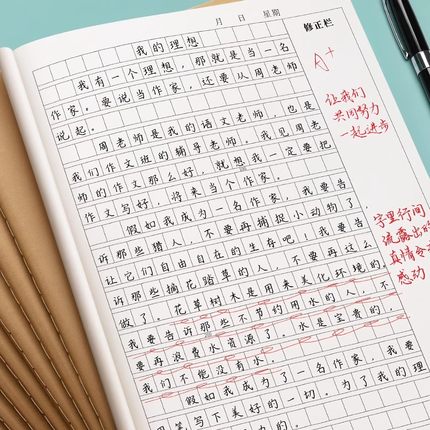 月 日 星期
修正栏
我的理想
我有一个理想，那就是当一名
作家。要说当作家，还要从周老师
说起。
周老师是我的语文老师，也是
我们作文班的辅导老师。我见周老
师的作文那么好，就想我一定要把
作文写好，将来当个作家。
假如我成为一名作家，我要告
诉那些猎人，不要再捕捉小动物了，
让它们自由自在的生存吧！我要告
诉那些摘花踏草的人，不要再这么
做了。花草树木是用来美化环境的。
我要告诉那些不节约用水的人，不
要再浪费水资源了。水是宝贵的，
我们不能没有水。
假如我成为了一名作家，我要
用笔写下美好的一切。为了我的理
A+
让我们
共同努力
一起进步
字里行间
流露出的
真情令
感动